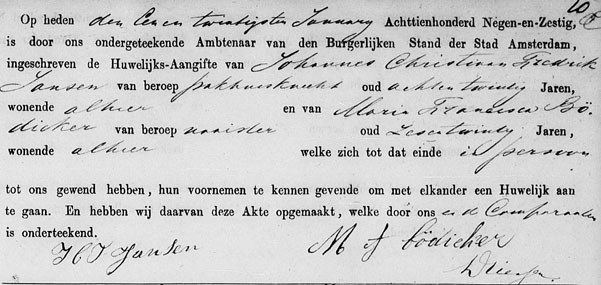 Op heden den Een en twintigsten January Achttienhonderd Negen-en-Zestig,
is door ons ondergeteekende Ambtenaar van den Burgerlijken Stand der Stad Amsterdam,
ingeschreven de Huwelijks-Aangifte van Johannes Christiaan Fredrik
Jansen van beroep pakhuisknecht oud achtentwintig Jaren,
wonende alhier en van Maria Francisca Bö-
dicker van beroep naaister oud Zesentwintig Jaren,
wonende alhier welke zich tot dat einde in persoon
tot ons gewend hebben, hun voornemen te kennen gevende om met elkander een Huwelijk aan
te gaan. En hebben wij daarvan deze Akte opgemaakt, welke door ons en de Comparanten
is onderteekend.
Jansen M F Bödicker